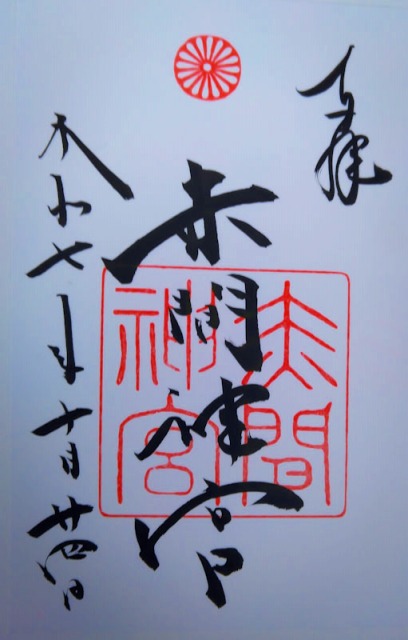 奉拝
赤間神宮
赤間
神宮
令和七年十月廿四日